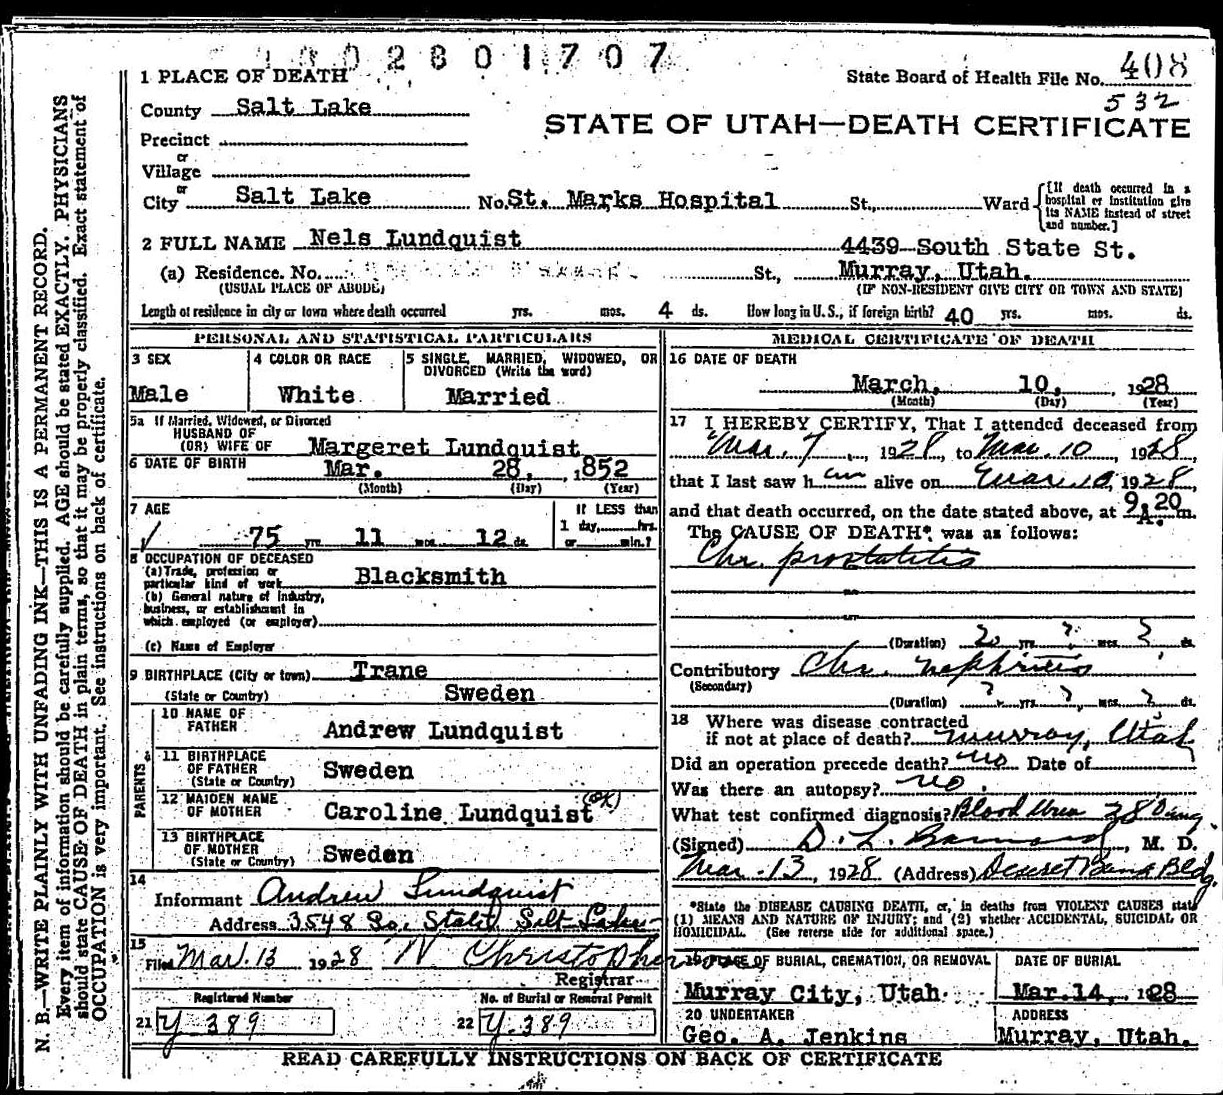 2801707
1 PLACE OF DEATH
State Board of Health File No. 408
532
County Salt Lake
STATE OF UTAH—DEATH CERTIFICATE
Precinct
or
Village
or
City Salt Lake No. St. Marks Hospital St., Ward
[If death occurred in a hospital or institution give its NAME instead of street and number.]
2 FULL NAME Nels Lundquist
4439 South State St.
(a) Residence. No. St., Murray, Utah.
(USUAL PLACE OF ABODE) (IF NON-RESIDENT GIVE CITY OR TOWN AND STATE)
Length of residence in city or town where death occurred yrs. mos. 4 ds. How long in U. S., if foreign birth? 40 yrs. mos. ds.
PERSONAL AND STATISTICAL PARTICULARS
3 SEX
Male
4 COLOR OR RACE
White
5 SINGLE, MARRIED, WIDOWED, OR DIVORCED (Write the word)
Married
5a If Married, Widowed, or Divorced
HUSBAND OF
(OR) WIFE OF Margeret Lundquist
6 DATE OF BIRTH Mar. 28, 1852
(Month) (Day) (Year)
7 AGE
75 yrs. 11 mos. 12 ds.
If LESS than
1 day, hrs.
or min.?
8 OCCUPATION OF DECEASED
(a) Trade, profession or
particular kind of work Blacksmith
(b) General nature of Industry,
business, or establishment in
which employed (or employer)
(c) Name of Employer
9 BIRTHPLACE (City or town) Trane
(State or Country) Sweden
PARENTS
10 NAME OF
FATHER Andrew Lundquist
11 BIRTHPLACE
OF FATHER Sweden
(State or Country)
12 MAIDEN NAME
OF MOTHER Caroline Lundquist (OK)
13 BIRTHPLACE
OF MOTHER Sweden
(State or Country)
14
Informant Andrew Lundquist
Address 3548 So. State Salt Lake
15
Filed Mar. 13 1928
Registrar
Registered Number
21 Y 389
No. of Burial or Removal Permit
22 Y.389
MEDICAL CERTIFICATE OF DEATH
16 DATE OF DEATH
March, 10, 1928
(Month) (Day) (Year)
17 I HEREBY CERTIFY, That I attended deceased from
Mar. 7, 1928, to Mar. 10 1928,
that I last saw him alive on Mar. 10, 1928,
and that death occurred, on the date stated above, at 9.20 A. m.
The CAUSE OF DEATH*, was as follows:
Chr. prostatitis
(Duration) 2 yrs. ? mos. ? ds.
Contributory Chr. nephritis
(Secondary)
(Duration) ? yrs. ? mos. ? ds.
18 Where was disease contracted
if not at place of death? Murray, Utah
Did an operation precede death? no Date of
Was there an autopsy? no.
What test confirmed diagnosis? Blood Urea 28
(Signed) D. L. , M. D.
Mar. 13, 1928 (Address) Deseret Bank Bldg.
*State the DISEASE CAUSING DEATH, or, in deaths from VIOLENT CAUSES state
(1) MEANS AND NATURE OF INJURY; and (2) whether ACCIDENTAL, SUICIDAL OR
HOMICIDAL. (See reverse side for additional space.)
19 PLACE OF BURIAL, CREMATION, OR REMOVAL
Murray City, Utah
DATE OF BURIAL
Mar. 14, 1928
20 UNDERTAKER
Geo. A. Jenkins
ADDRESS
Murray, Utah.
READ CAREFULLY INSTRUCTIONS ON BACK OF CERTIFICATE
N. B.—WRITE PLAINLY WITH UNFADING INK—THIS IS A PERMANENT RECORD.
Every item of information should be carefully supplied. AGE should be stated EXACTLY. PHYSICIANS
should state CAUSE OF DEATH in plain terms, so that it may be properly classified. Exact statement of
OCCUPATION is very important. See instructions on back of certificate.